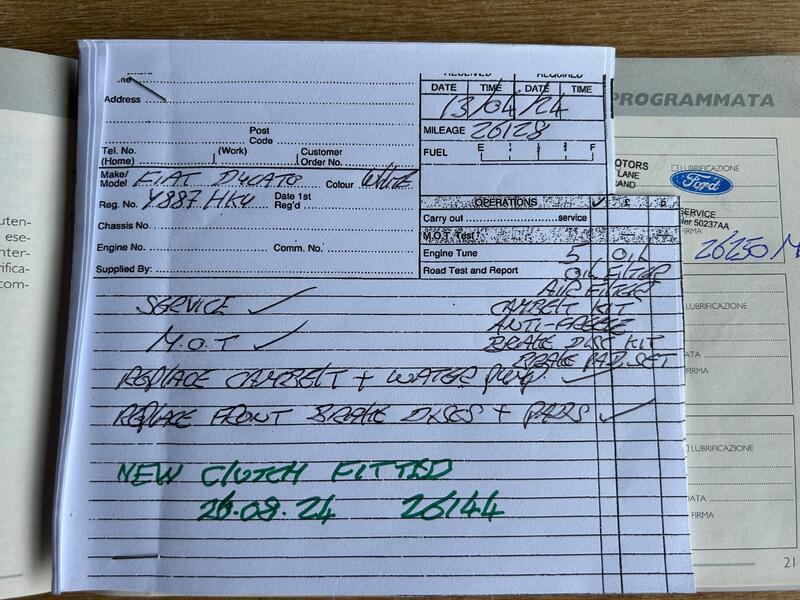 Address
Post
Code
Tel. No.
(Home)
(Work)
Customer
Order No.
Make/
Model FIAT DUCATO Colour WHITE
Reg. No. Y887 HKU Date 1st
Reg'd
Chassis No.
Engine No. Comm. No.
Supplied By:
RECEIVED REQUIRED
DATE TIME DATE TIME
13/04/24
MILEAGE 26128
FUEL E F
OPERATIONS ✓ £ p
Carry out service
M.O.T. Test
Engine Tune 5 OIL
Road Test and Report OIL FILTER
AIR FILTER
SERVICE ✓ CAMBELT KIT
ANTI-FREEZE
M.O.T ✓ BRAKE DISC KIT
BRAKE PAD SET
REPLACE CAMBELT + WATER PUMP ✓
REPLACE FRONT BRAKE DISCS + PADS ✓
NEW CLUTCH FITTED
26.08.24 26144
PROGRAMMATA
OTORS
LANE
AND
LUBRIFICAZIONE
Ford
SERVICE
50237AA
FIRMA
26250 M
LUBRIFICAZIONE
ATA
FIRMA
LUBRIFICAZIONE
ATA
FIRMA
21
uten-
ese-
nter-
rifica-
com-